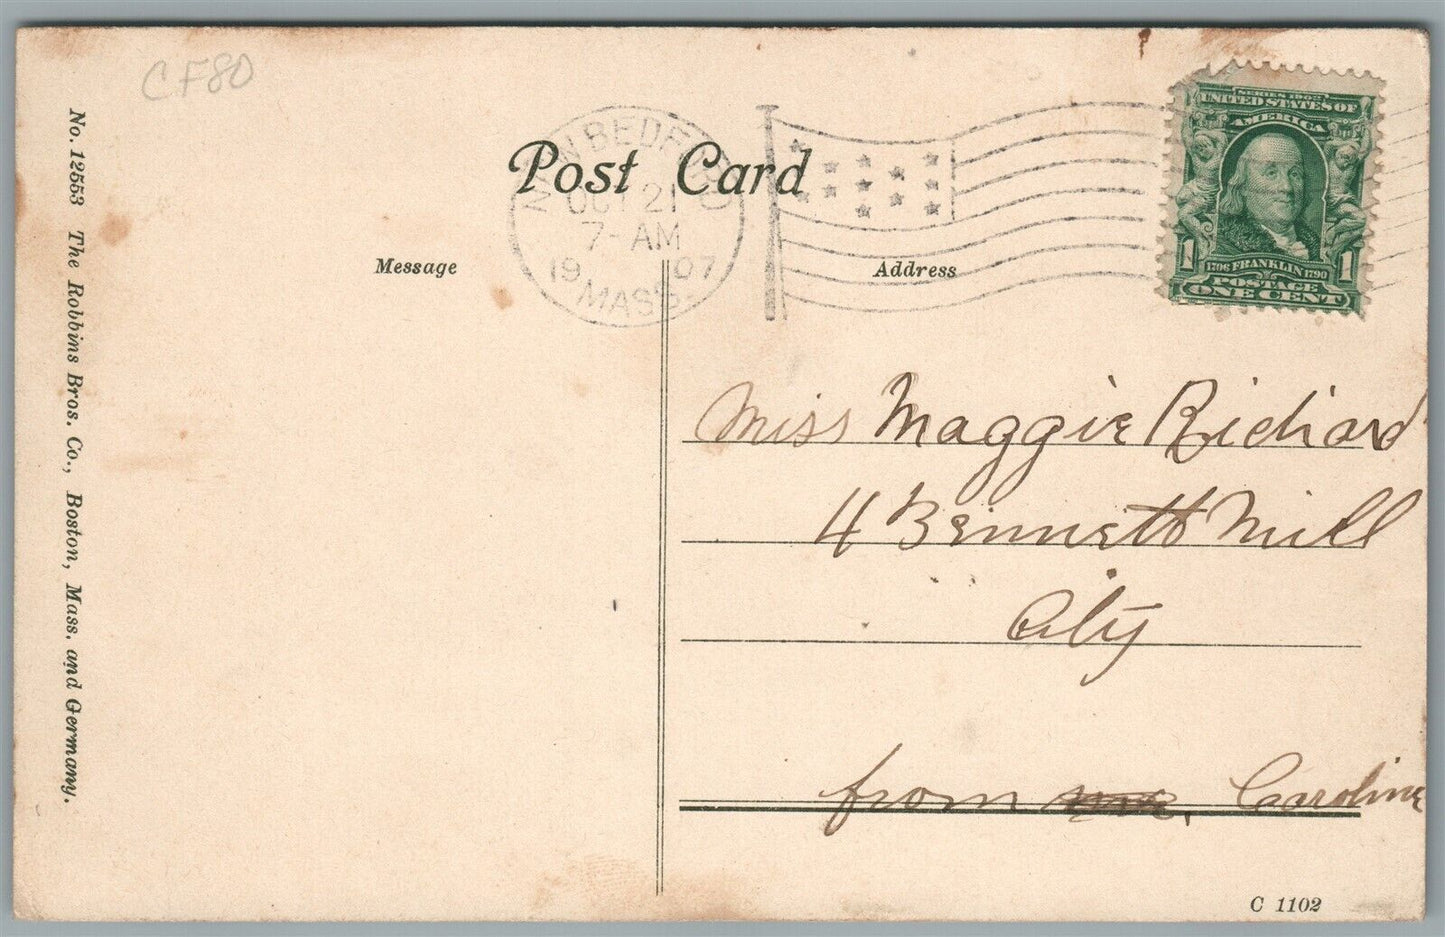 CF80
No. 12553 The Robbins Bros. Co., Boston, Mass. and Germany.
Post Card
NEW BEDFORD
OCT 21
7-AM
1907
MASS.
SERIES 1902
UNITED STATES OF
AMERICA
1 1
1706 FRANKLIN 1790
POSTAGE
ONE CENT
Message
Address
Miss Maggie Richard
4 Bennett Mill
City
from me, Caroline
C 1102